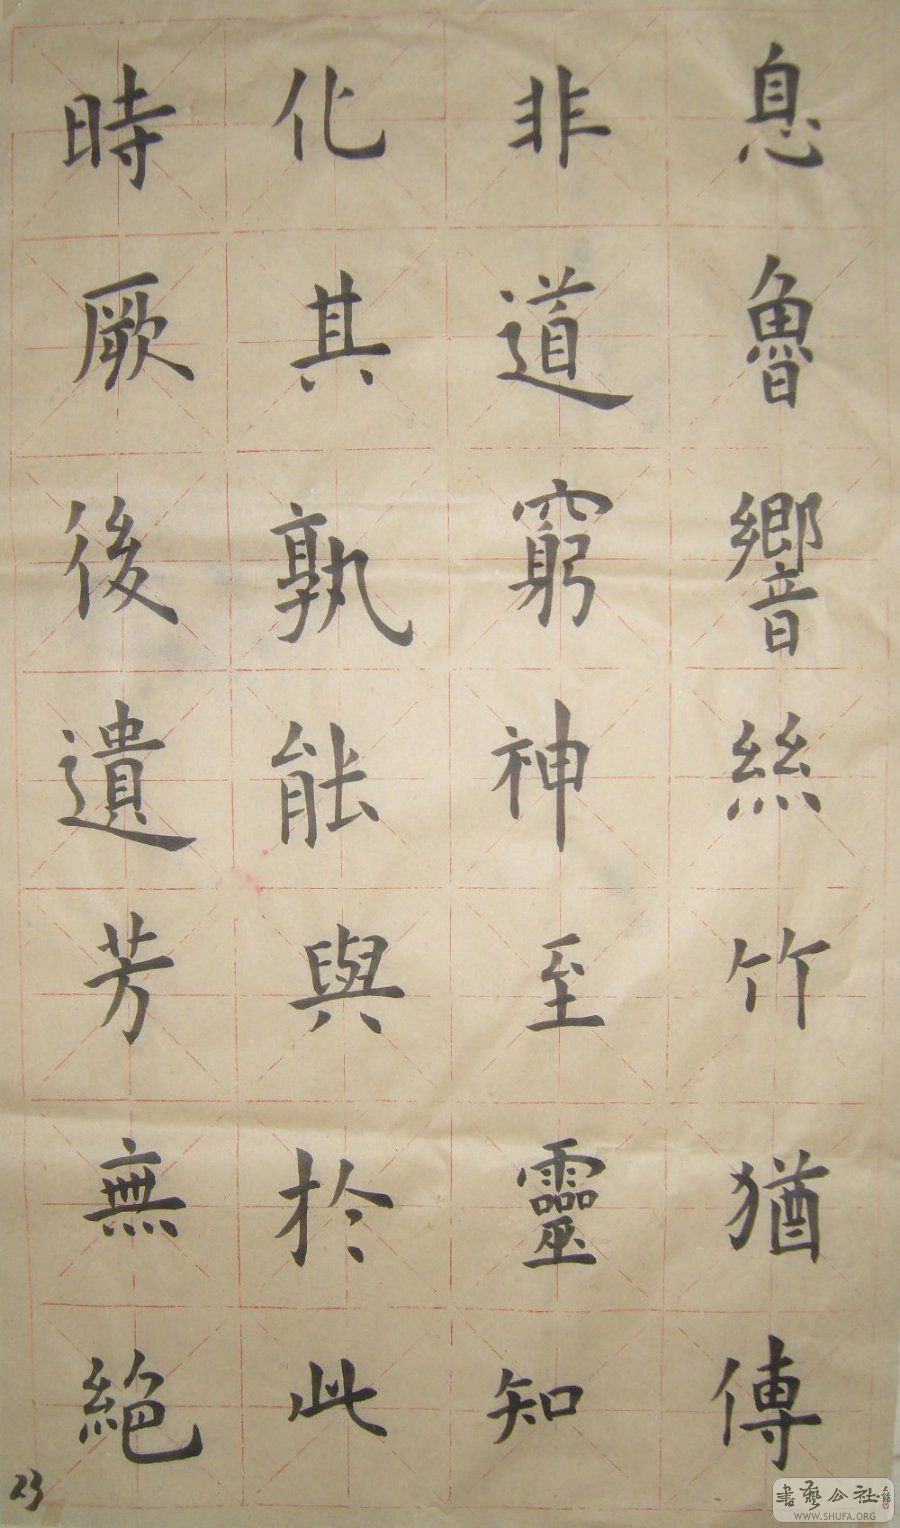 息魯響絲竹猶傳
非道窮神至靈知
化其孰能與於此
時厥後遺芳無絕
23
書藝公社
WWW.SHUFA.ORG